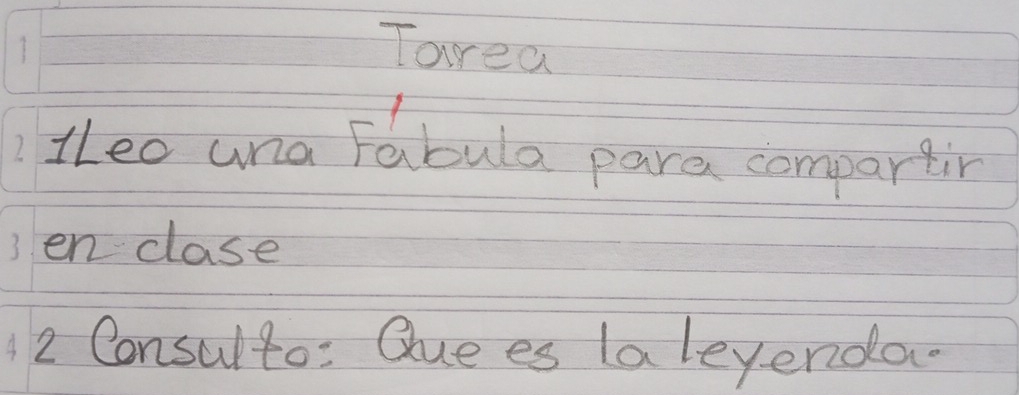 1 Tarea
2 1Leo una Fábula para compartir
3 en clase
4 2 Consulto: Que es la leyenda.